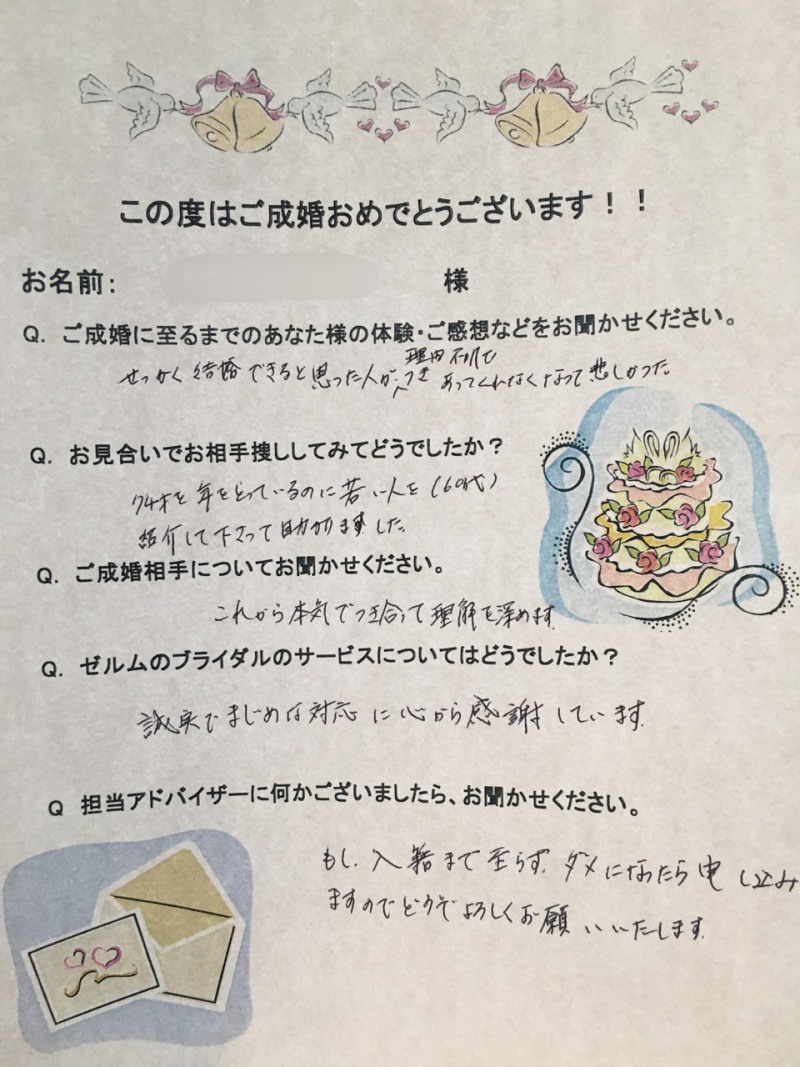 この度はご成婚おめでとうございます！！
お名前： 様
Q. ご成婚に至るまでのあなた様の体験・ご感想などをお聞かせください。
理由不明で
せっかく結婚できると思った人が、つき あってくれなくなって悲しかった。
Q. お見合いでお相手捜ししてみてどうでしたか？
74才と年をとっているのに若い人を（60代）
紹介して下さって助かりました。
Q. ご成婚相手についてお聞かせください。
これから本気でつき合って理解を深めます
Q. ゼルムのブライダルのサービスについてはどうでしたか？
誠実でまじめな対応に心から感謝しています。
Q 担当アドバイザーに何かございましたら、お聞かせください。
もし、入籍まで至らず、ダメになったら申し込み
ますのでどうぞよろしくお願いいたします。